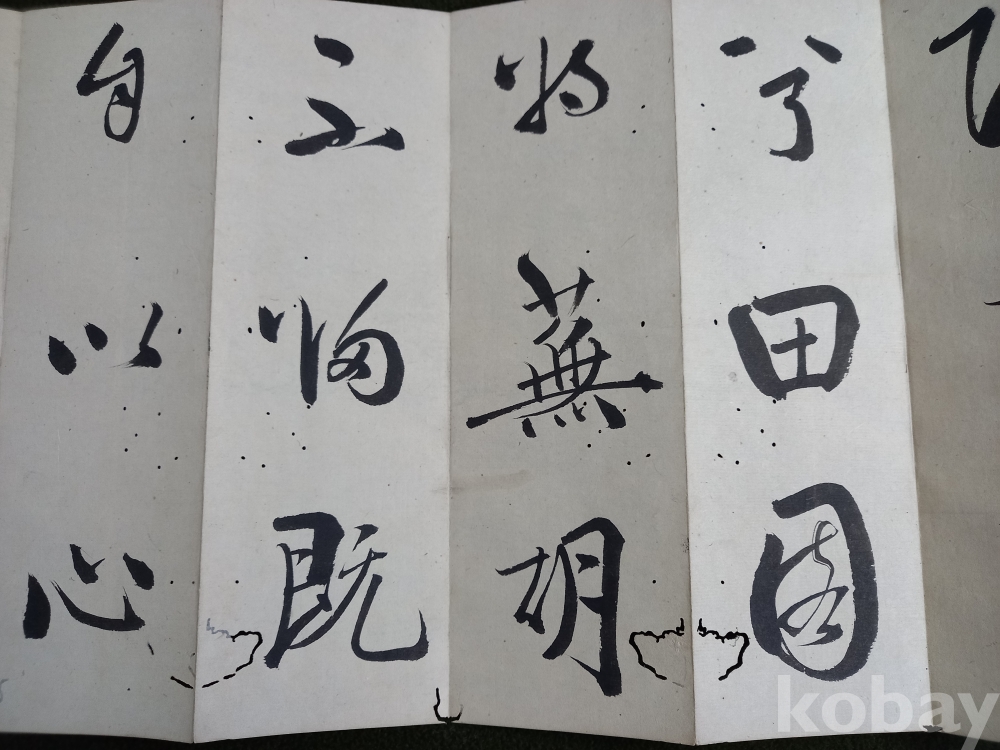 兮田園
将蕪胡
不歸既
自以心
kobay